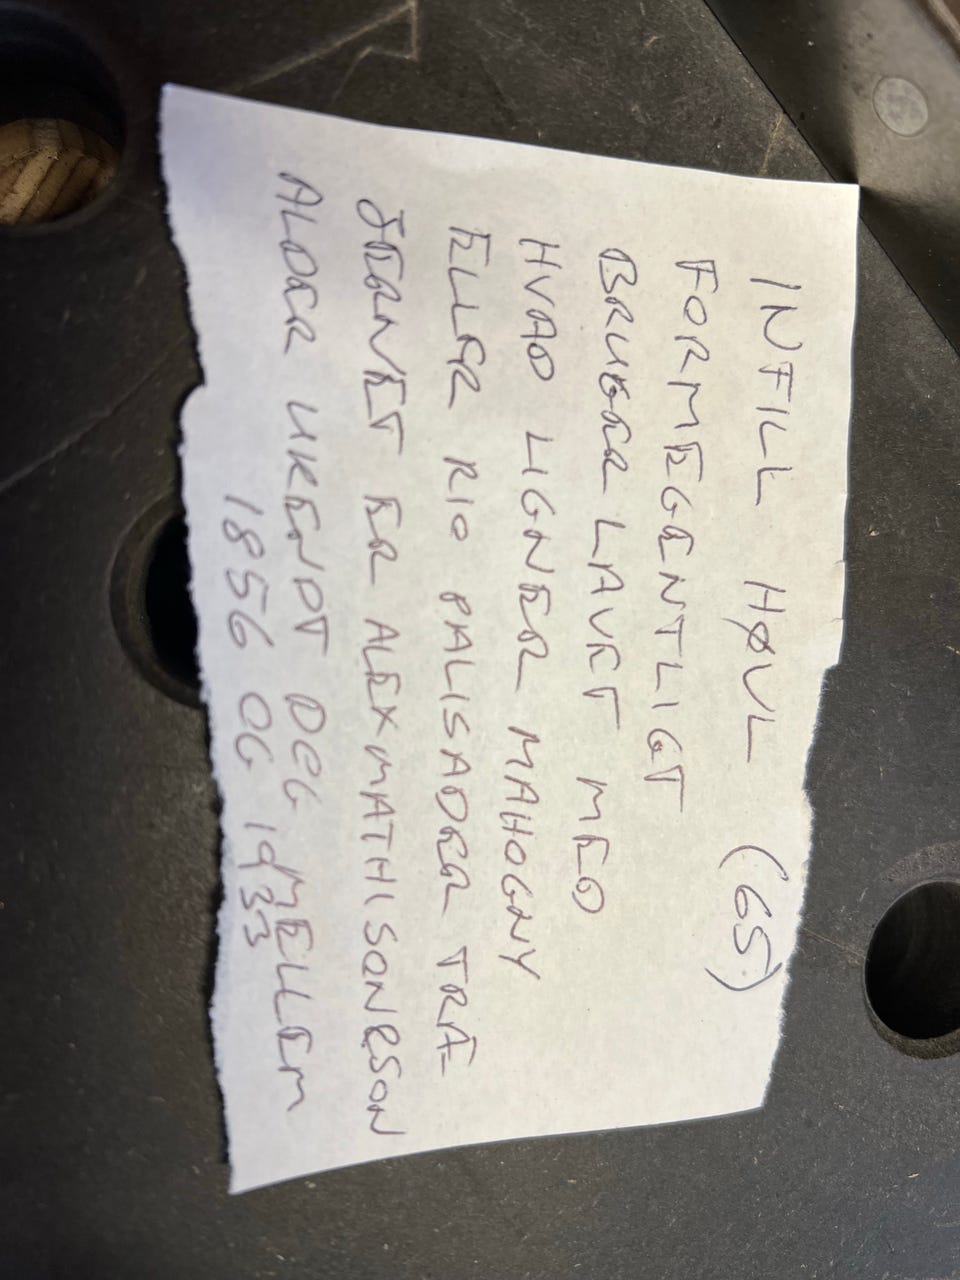 INFILL HØVL (65)
FORMEGENTLIGT
BRUGER LAVET MED
HVAD LIGNER MAHOGNY
ELLER RIO PALISADER TRÆ
JERNET ER ALEX MATHISONRSON
ALDER UKENDT DOG MELLEM
1856 OG 1933